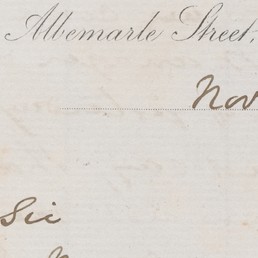 Albemarle Street,
Nov
Sir